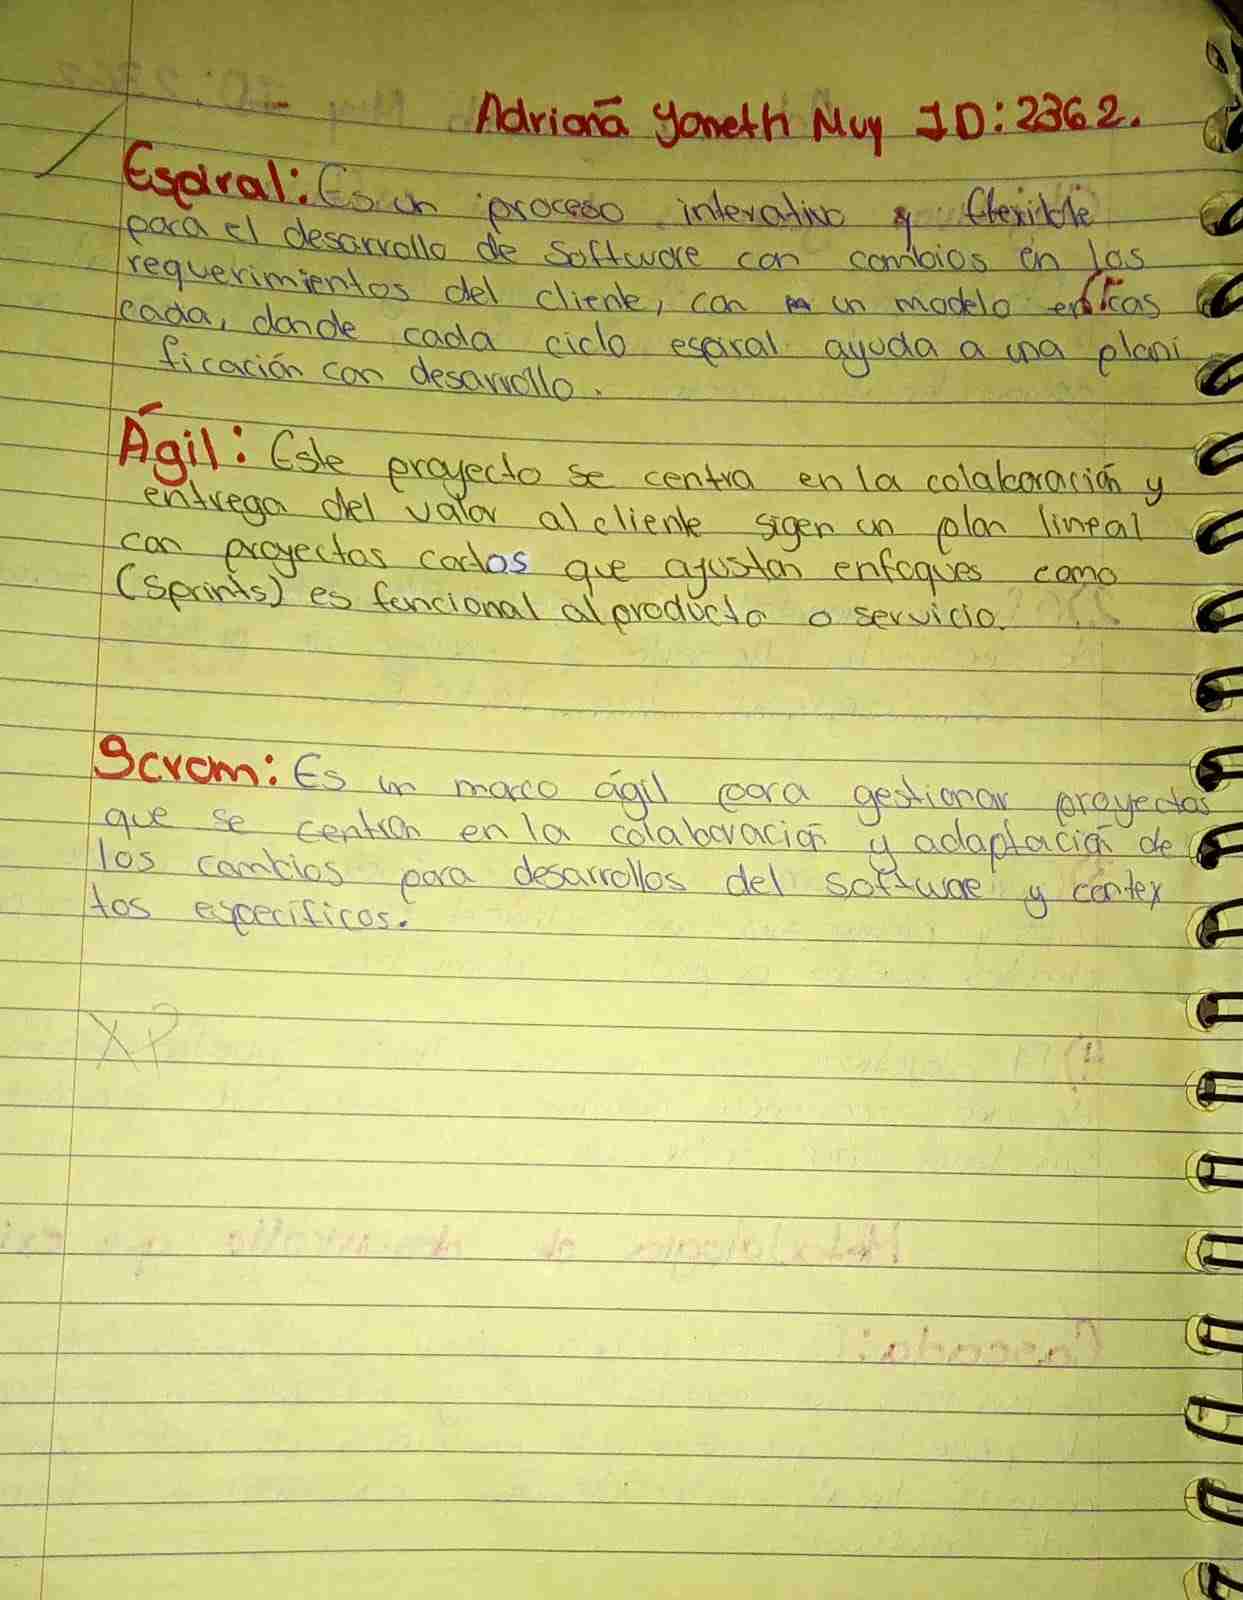 Adriana Yoneth Muy ID: 2362.
Espiral: Es un proceso interativo y flexible
para el desarrollo de Software con cambios en los
requerimientos del cliente, con un modelo en cas
cada, donde cada ciclo espiral ayuda a una plani
ficación con desarrollo.
Ágil: Este proyecto se centra en la colaboración y
entrega del valor al cliente sigen un plan lineal
con proyectos cortos que ajustan enfoques como
(Sprints) es funcional al producto o servicio.
Scrom: Es un marco ágil para gestionar proyectos
que se centran en la colaboración y adaptación de
los cambios para desarrollos del software y contex
tos específicos.
XP